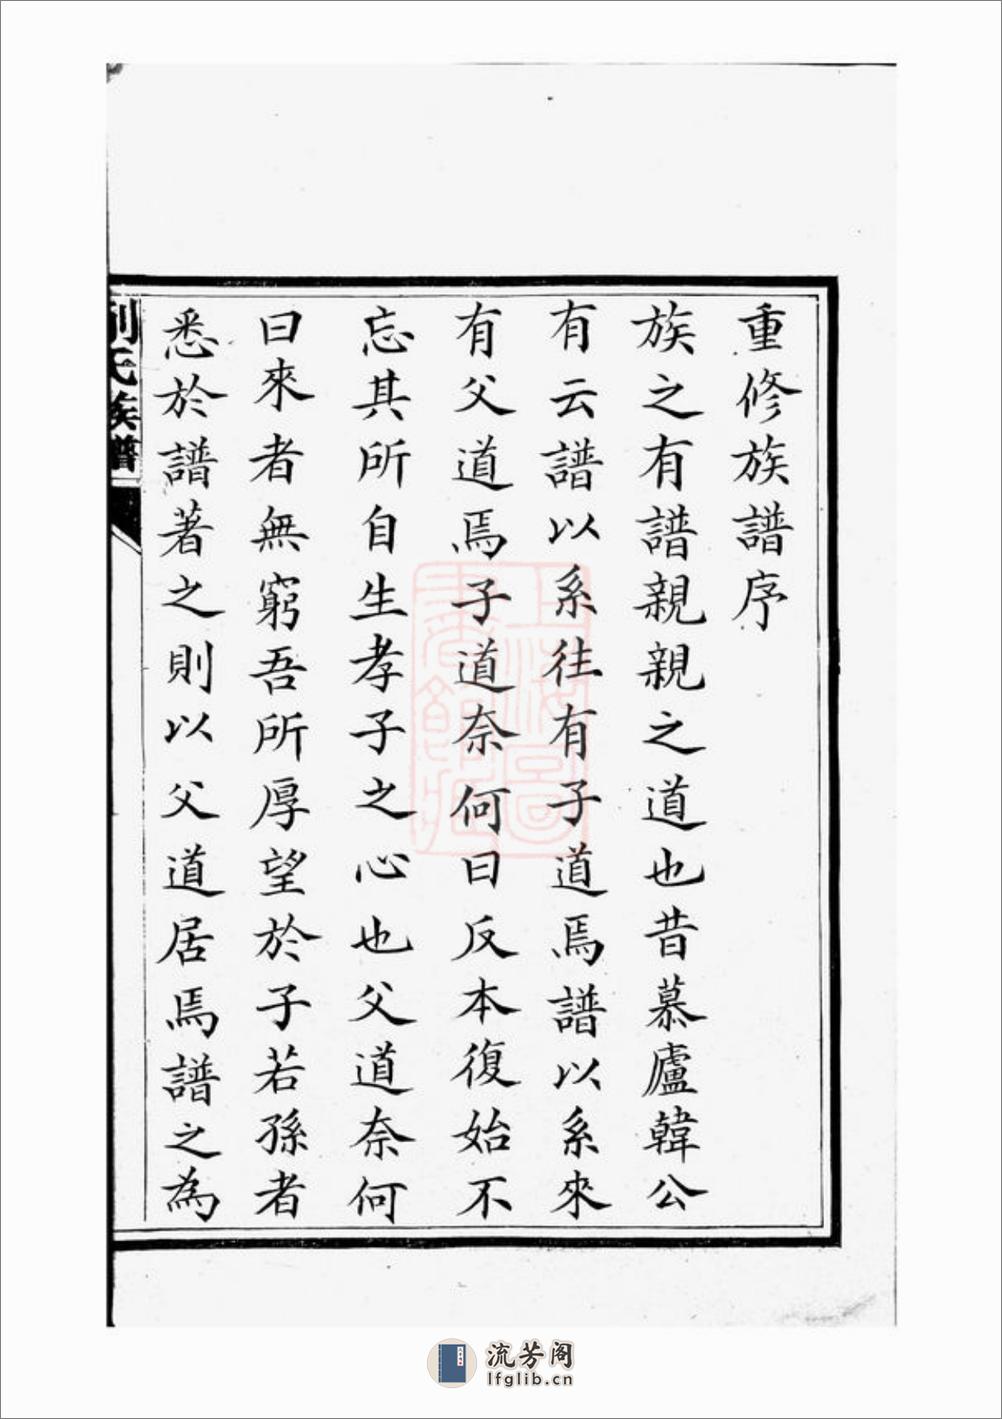 重修族譜序
族之有譜親親之道也昔慕廬韓公
有云譜以系往有子道焉譜以系來
有父道焉子道奈何曰反本復始不
忘其所自生孝子之心也父道奈何
曰來者無窮吾所厚望於子若孫者
悉於譜著之則以父道居焉譜之為
劉氏族譜
上海圖書館藏
流芳阁
lfglib.cn